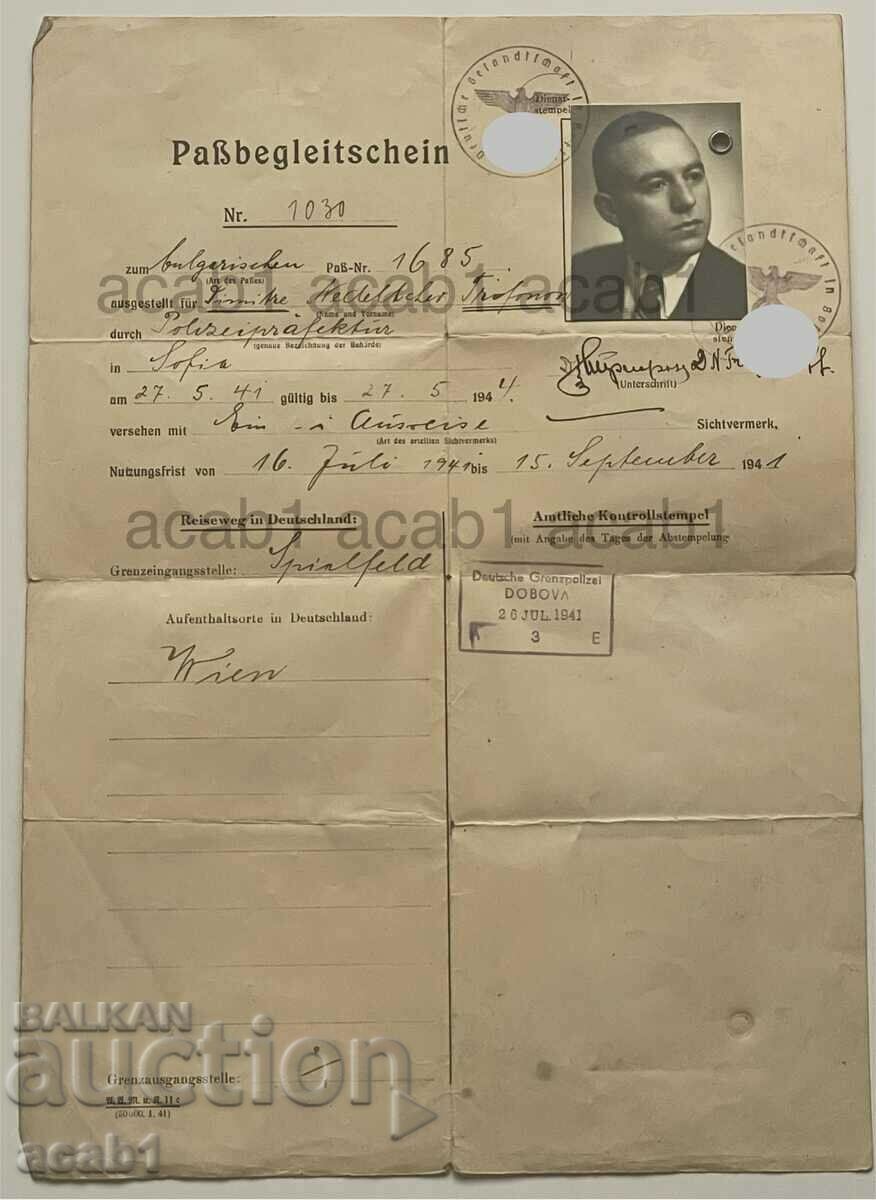 Paßbegleitschein
Dienst-
stempel
Nr. 1030
zum bulgarischen Paß-Nr. 1685
(Art des Paßes)
ausgestellt für Dimitre Trofonow
(Name und Vorname)
durch Polizeipräfektur
(genaue Bezeichnung der Behörde)
in Sofia
(Unterschrift)
am 27. 5. 41 gültig bis 27. 5. 1944.
versehen mit Ein - u Ausreise Sichtvermerk,
(Art des erteilten Sichtvermerks)
Nutzungsfrist von 16. Juli 1941 bis 15. September 1941
acab1 acab1 acab1
Reiseweg in Deutschland:
Grenzeingangsstelle: Spielfeld
Aufenthaltsorte in Deutschland:
Wien
Grenzausgangsstelle:
(50 000. 1. 41)
Amtliche Kontrollstempel
(mit Angabe des Tages der Abstempelung
Deutsche Grenzpolizei
DOBOVA
26 JUL. 1941
3 E
Deutsche Gesandtschaft in
acab1 acab1 acab1
BALKAN
auction
acab1